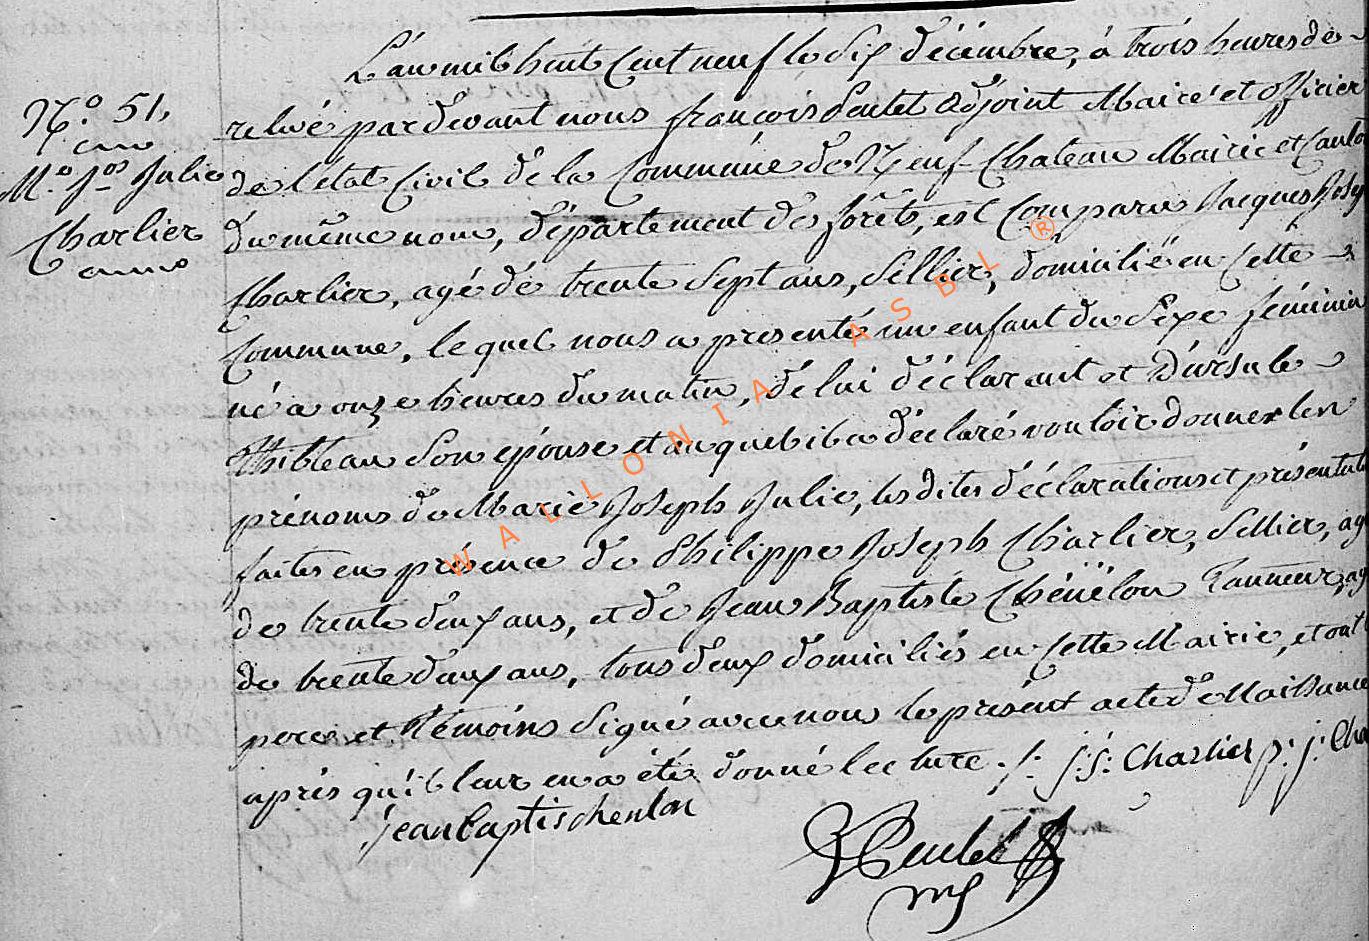 L'an mil huit Cent neuf le dix décembre, à trois heures de
N.° 51,
relevé pardevant nous françois Adjoint Maire et officier
M.e J.os Julie
de l'état Civil de la Commune de Neufchateau Mairie et Canton
Charlier
du même nom, département des forêts, est Comparu Jacques Josep
Charlier, agé de trente Sept ans, Sellier, domicilié en Cette
Commune, lequel nous a presenté un enfant du Sexe féminin
né a onze heures du matin, de lui déclarant et D'ursule
Thibleau Son epouse et auquel il a déclaré vouloir donner les
prénoms de Marie Joseph Julie, les dites déclarations et présentat
faites en présence de Philippe Joseph Charlier, Sellier, ag
de trente deux ans, et de Jean Baptiste Chênêlon Tanneur, ag
de trente deux ans, tous deux domiciliés en Cette Mairie, et ont
pere et témoins Signé avec nous le présent acte de Naissance
après qu'il leur en a été donné lecture. /. j: j: Charlier p: j: Cha
jean baptis chenlon
WALLONIA ASBL ®